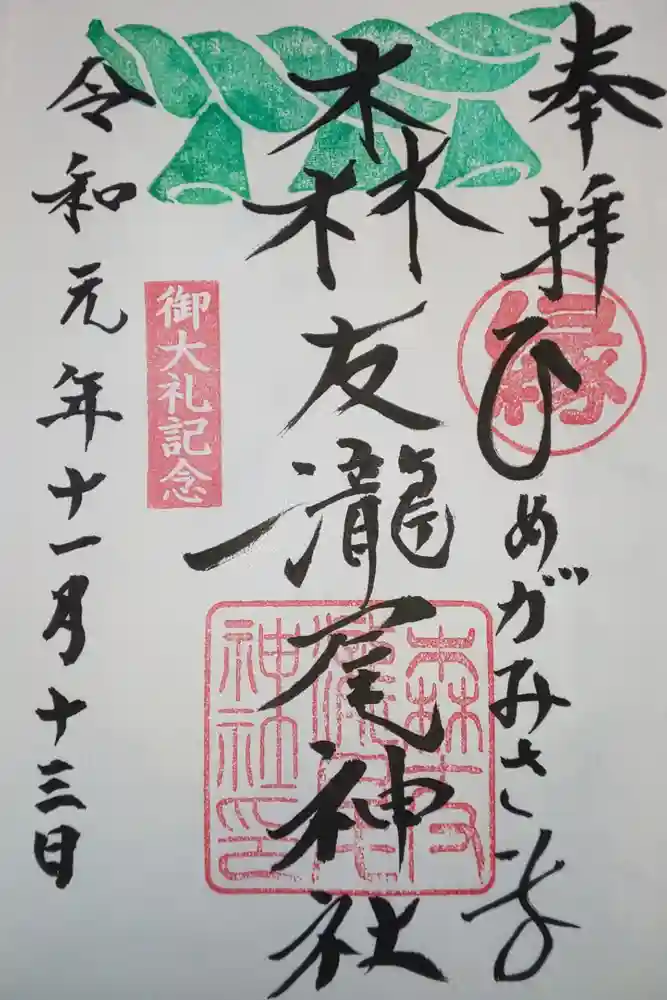 奉拝
縁
ひめがみさま
森友瀧尾神社
森友
瀧尾
神社印
御大礼記念
令和元年十一月十三日